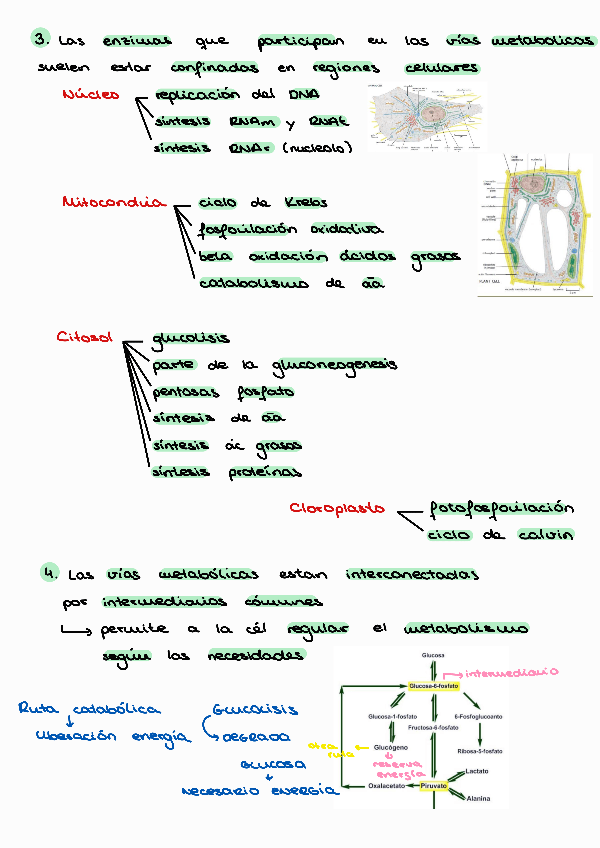 3. Las enzimas que participan en las vías metabólicas
suelen estar confinadas en regiones celulares
Núcleo
replicación del DNA
síntesis RNAm y RNAt
síntesis RNAr (nucleolo)
Mitocondria
ciclo de Krebs
fosforilación oxidativa
beta oxidación ácidos grasos
catabolismo de aa
PLANT CELL
Citosol
glucolisis
parte de la gluconeogenesis
pentosas fosfato
síntesis de aa
síntesis ác grasos
síntesis proteínas
Cloroplasto
fotofosforilación
ciclo de calvin
4. Las vías metabólicas estan interconectadas
por intermediarios cómunes
permite a la cél regular el metabolismo
según las necesidades
Glucosa
intermediario
Glucosa-6-fosfato
Ruta catabólica
Glucolisis
Glucosa-1-fosfato
6-Fosfogluconato
Fructosa-6-fosfato
liberación energía
DEGRADA
otra ruta
Glucógeno
Ribosa-5-fosfato
GLUCOSA
reserva energía
Lactato
NECESARIO ENERGÍA
Oxalacetato
Piruvato
Alanina